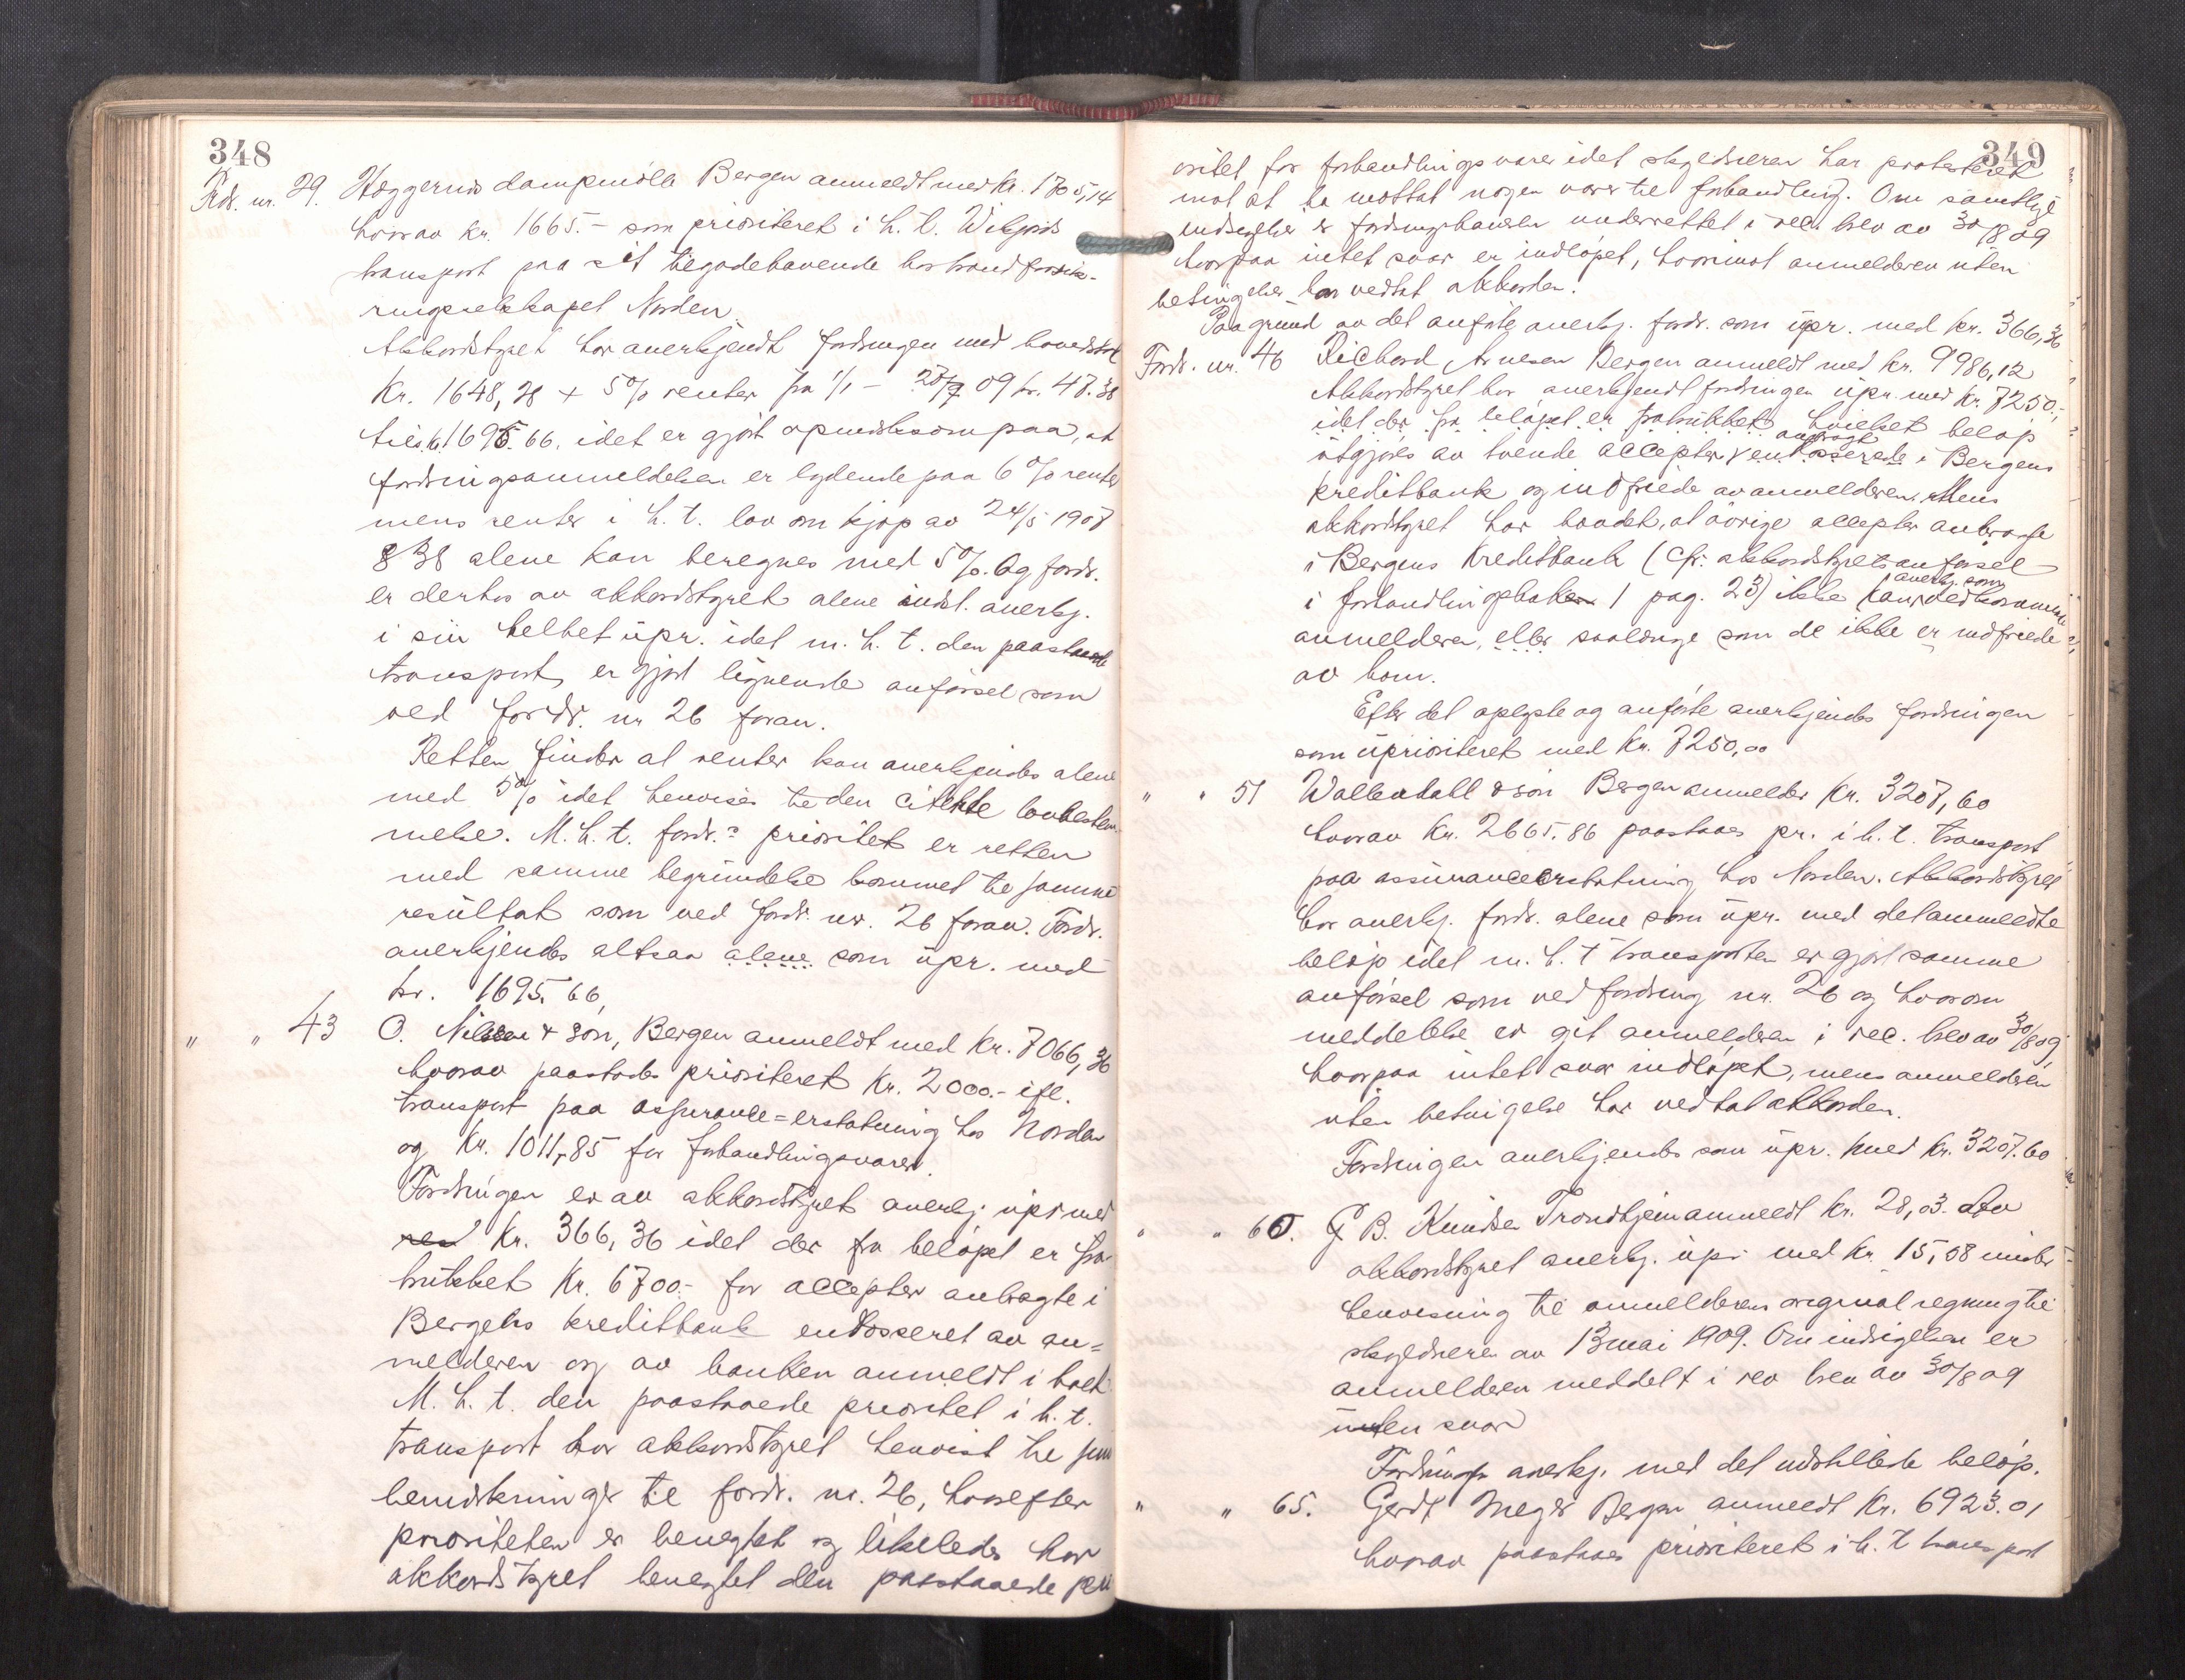 348
Fds. nr. 29. Hæggernes dampmölle Bergen anmeldt med kr. 1705,14
hvorav kr. 1665.- som prioriteret i h. t. Wiligsons
transport paa sit tilgodehavende hos brandforsik-
ringsselskapet Norden.
Akkordstyret har anerkjendt fordringen med hovedstol
Kr. 1648,28 + 5% renter fra 1/1 - 27/7 09 kr. 47.38
tils. kr. 1695.66. idet er gjort opmerksom paa, at
fordringsanmeldelsen er lydende paa 6% renter
mens renter i h. t. lov om kjøp av 24/5 1907
§ 38 alene kan beregnes med 5%. Og fordr.
er derhos av akkordstyret alene indst. anerkj.
i sin helhet üpr. idet m. h. t. den paastaaede
transport, er gjort lignende anførsel som
ved fordr. nr 26 foran.
Retten finder at renter kan anerkjendes alene
med 5% idet henvises til den citerte lovbestem-
melse. M. h. t. fordr.s prioritet er retten
med samme begründelse kommet til samme
resültat som ved fordr. nr. 26 foran. Fordr.
anerkjendes altsaa alene som üpr. med
kr. 1695.66,
" " 43 O. Nilssen & sön, Bergen anmeldt med Kr. 7066,36
hvorav paastaaes prioriteret Kr. 2000.- ifl.
transport paa assurance=erstatning hos Norden
og Kr. 1011,85 for forhandlingsvarer.
Fordringen er av akkordstyret anerkj. üpr med
Kr. 366,36 idet der fra beløpet er fra-
trükket Kr. 6700.- for accepter anbragte i
Bergens kreditbank endosseret av an=
melderen og av banken anmeldt i boet
M. h. t. den paastaaede prioritet i h. t.
transport har akkordstyret henvist til sine
bemerkninger til fordr. nr. 26, hvorefter
prioriteten er benegtet og likeledes har
akkordstyret benegtet den paastaaede pri
349
oritet for forhandlingsvarer idet skyldneren har protesteret
mot at ha mottat nogen varer til forhandling. Om samtlige
indsigelser er fordringshaveren underrettet i rec. brev av 30/8 09
hvorpaa intet svar er indløpet, hvorimot anmelderen uten
betingelser har vedtat akkorden.
Paa grund av det anførte anerkj. fordr. som üpr. med kr. 366,36
Fordr. nr. 46 Richard Arnesen Bergen anmeldt med kr. 9986,12
Akkordstyret har anerkjendt fordringen üpr. med kr. 7250,-
idet der fra beløpet er fratrükket hvilket beløp
ütgjøres av tvende accepter anbragt endosserede i Bergens
kreditbank og indfriede av anmelderen. Mens
akkordstyret har hævdet, at øvrige accepter anbragt
i Bergens Kreditbank (cfr. akkordstyrets anførsel
i forhandlingsboken 1 pag. 23) ikke kan anerkj. som vedkommende
anmelderen, eller saalænge som de ikke er indfriede
av ham.
Efter det oplyste og anførte anerkjendes fordringen
som üprioriteret med kr. 7250,00
" " 51 Wallendahl & sön Bergen anmelder Kr. 3207,60
hvorav Kr. 2665.86 paastaaes pr. i h. t. transport
paa assuranceerstatning hos Norden. Akkordstyret
har anerkj. fordr. alene som üpr. med det anmeldte
beløp idet m. h. t transporten er gjort samme
anførsel som ved fordring nr. 26 og hvorom
meddelelse er git anmelderen i rec. brev av 30/8 09
hvorpaa intet svar indløpet, mens anmelderen
uten betingelse har vedtat akkorden.
Fordringen anerkjendes som üpr. med Kr. 3207.60
" " 60. G B. Knudsen Trondhjem anmeldt kr. 28,03. Av
akkordstyret anerkj. üpr. med kr. 15,58 under
henvisning til anmelderens original regning til
skyldneren av 13 mai 1909. Om indsigelsen er
anmelderen meddelt i rec brev av 30/8 09
uten svar
Fordringen anerkj. med det indstillede beløp.
" " 65. Gerdt Meyer Bergen anmeldt Kr. 6923.01
hvorav paastaaes prioriteret i h. t transport